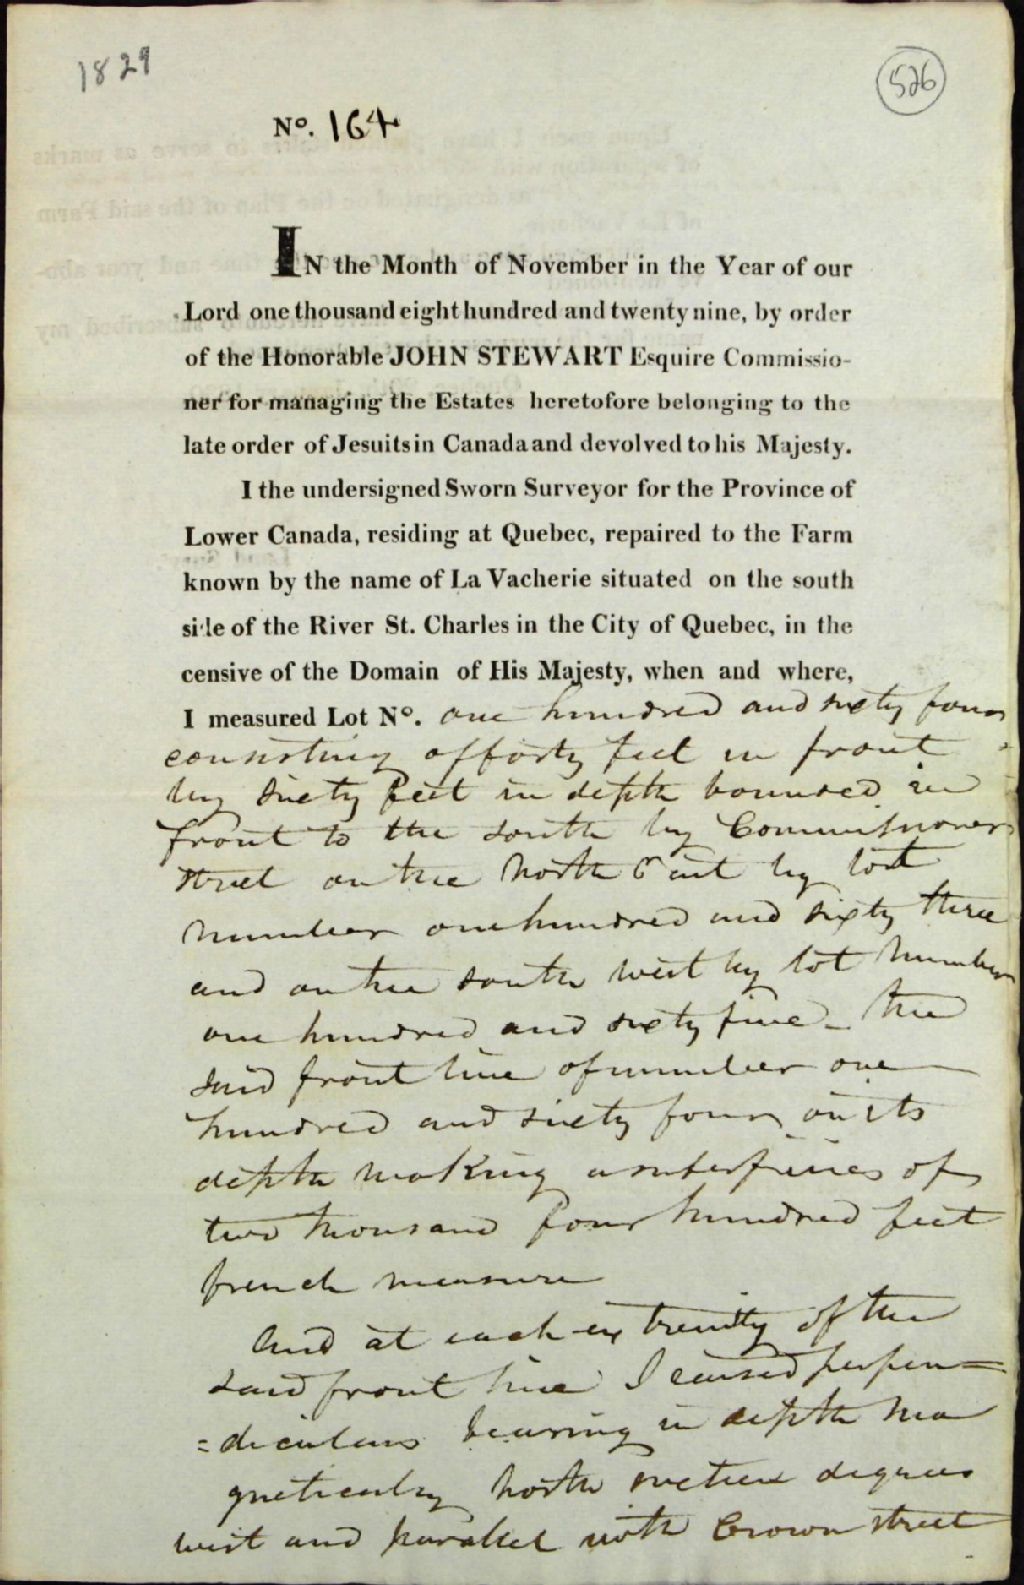 1829
526
No. 164
IN the Month of November in the Year of our
Lord one thousand eight hundred and twenty nine, by order
of the Honorable JOHN STEWART Esquire Commissio-
ner for managing the Estates heretofore belonging to the
late order of Jesuits in Canada and devolved to his Majesty.
I the undersigned Sworn Surveyor for the Province of
Lower Canada, residing at Quebec, repaired to the Farm
known by the name of La Vacherie situated on the south
side of the River St. Charles in the City of Quebec, in the
censive of the Domain of His Majesty, when and where,
I measured Lot No. one hundred and sixty four
consisting of forty feet in front
by sixty feet in depth bounded in
front to the south by Commissioners
street on the North East by lot
number one hundred and sixty three
and on the south west by lot number
one hundred and sixty five - the
said front line of number one
hundred and sixty four on its
depth making a superficies of
two thousand four hundred feet
french measure
And at each extremity of the
said front line I caused perpen=
=diculars bearing in depth ma
gnetically North sixteen degrees
west and parallel with Crown street